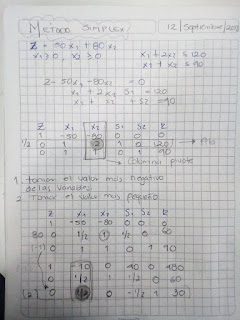 Metodo Simplex 12 | Septiembre
Z = 50x₁ + 80x₂
x₁ ≥ 0, x₂ ≥ 0
x₁ + 2x₂ ≤ 120
x₁ + x₂ ≤ 90
Z - 50x₁ - 80x₂ = 0
x₁ + 2x₂ S₁ = 120
x₁ + x₂ + S₂ = 90
Z x₁ x₂ S₁ S₂ R
1 -50 -80 0 0 0
1/2 0 1 2 1 0 120
0 1 1 0 1 90
Columna pivote
1 tomar el valor mas negativo
de las variables
2 Tomar el valor mas pequeño
Z x₁ x₂ S₁ S₂ R
1 -50 -80 0 0 0
80 0 1/2 1 1/2 0 60
(-1) 0 1 1 0 1 90
0 1/2 1 1/2 0 60
[2] 0 1/2 0 -1/2 1 30